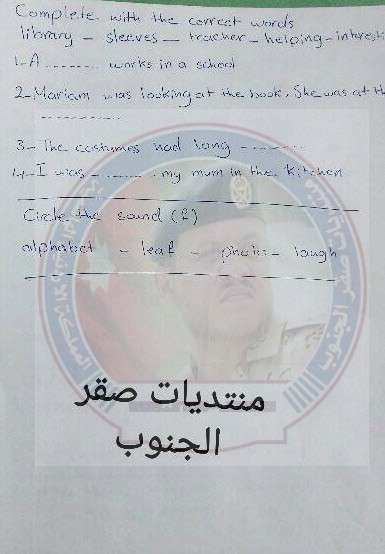 Complete with the correct words
library - sleeves - teacher - helping - interesti
1- A ........ works in a school
2- Mariam was looking at the book. She was at th
............
3- The costumes had long .........
4- I was ......... my mum in the kitchen
Circle the sound (f)
alphabet - leaf - photo - laugh
منتديات صقر
الجنوب